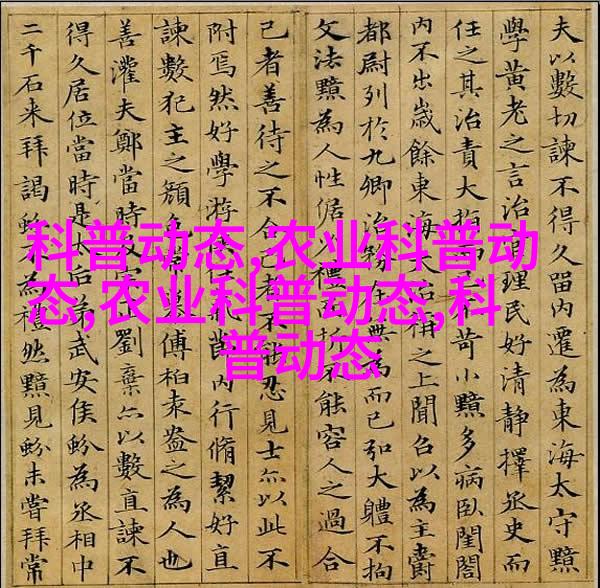 科普动态,农业科普动
态,农业科普动态,科
普动态
夫以數切諫不得久留內遷為東海太守黯
學黃老之言治官理民好清靜擇丞史而
任之其治責大指而已不苛小黯多病臥閨閤
內不出歲餘東海大治稱之上聞召以為主爵
都尉列於九卿治務在無為而已弘大體不拘
文法黯為人性倨少禮面折不能容人之過合
己者善待之不合己者不能忍見士亦以此不
附焉然好學游俠任氣節內行脩絜好直
諫數犯主之顏色常慕傅柏袁盎之為人也
善灌夫鄭當時及宗正劉棄亦以數直諫不
得久居位當時是太后弟武安侯蚡為丞相中
二千石來拜謁蚡不為禮然黯見蚡未嘗拜常